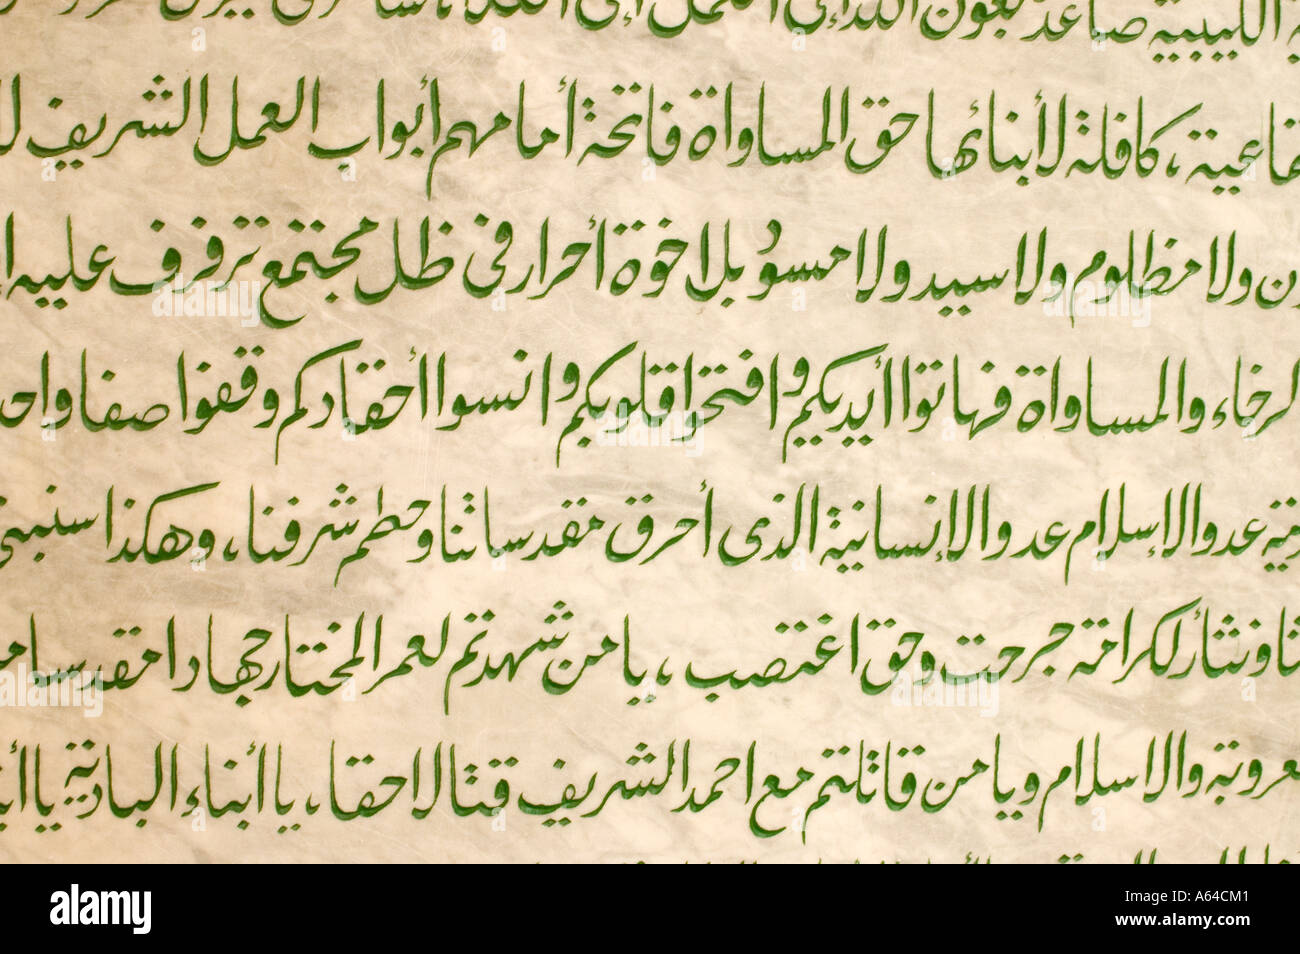 الليبية صاعدة
كافلة لأبنائها حق المساواة فاتحة أمامهم أبواب العمل الشريف
ولا مظلوم ولا سيد ولا مسوُد بل اخوة أحرار فى ظل مجتمع ترفرف عليه
الرخاء والمساواة فهاتوا أيديكم وافتحوا قلوبكم وانسوا أحقادكم وقفوا صفا واحـ
عدو الإسلام عدو الإنسانية الذى أحرق مقدساتنا وحطم شرفنا، وهكذا سنبنى
ونثأر لكرامة جرحت وحق اغتصب، يا من شهدتم لعمر المختار جهادا مقدسا
والاسلام ويا من قاتلتم مع احمد الشريف قتالا حقا، يا أبناء البادية يا
alamy
Image ID: A64CM1
www.alamy.com